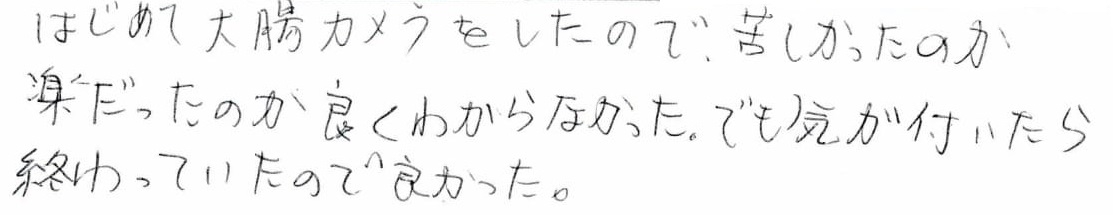 はじめて大腸カメラをしたので、苦しかったのか
楽だったのか良くわからなかった。でも気が付いたら
終わっていたので良かった。